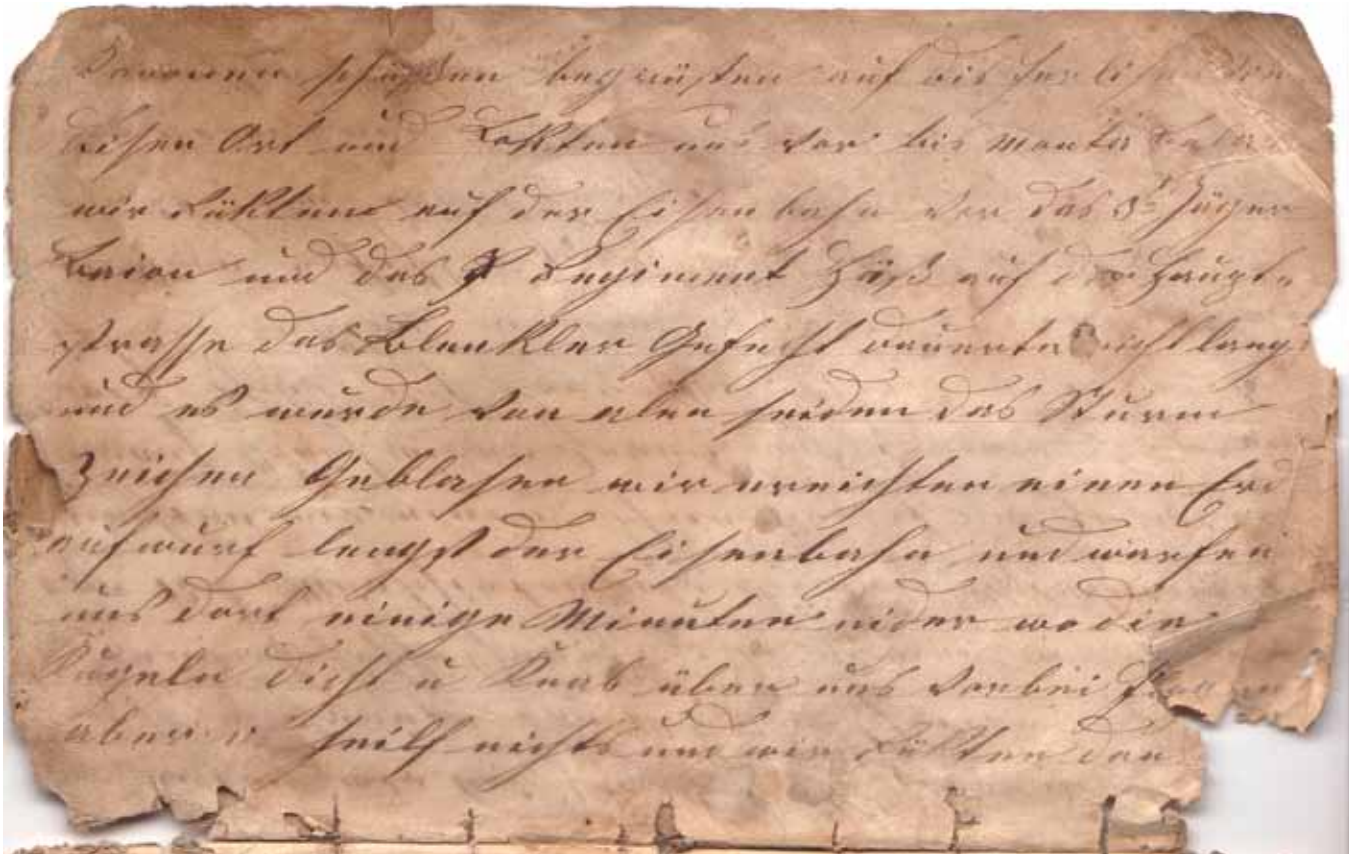 Kanonen schüssen begrüsten auf das
diesen Ort und Rekten uns vor bis Monte
wir rükten auf der Eisenbahn vor das 3t Jäger
Baion und das Regiment Häß auf der Haupt-
strasse das Blenkler Gefecht dauerte nicht lang
und es wurde von alen seiden das Sturm
Zeichen Geblasen wir erreichten einen Erd
aufwurf lengst der Eisenbahn und warfen
uns dort einige Minuten nider wo die
Kugeln dicht u Knab über uns vorbei
aber half nichts und wir rükten vor